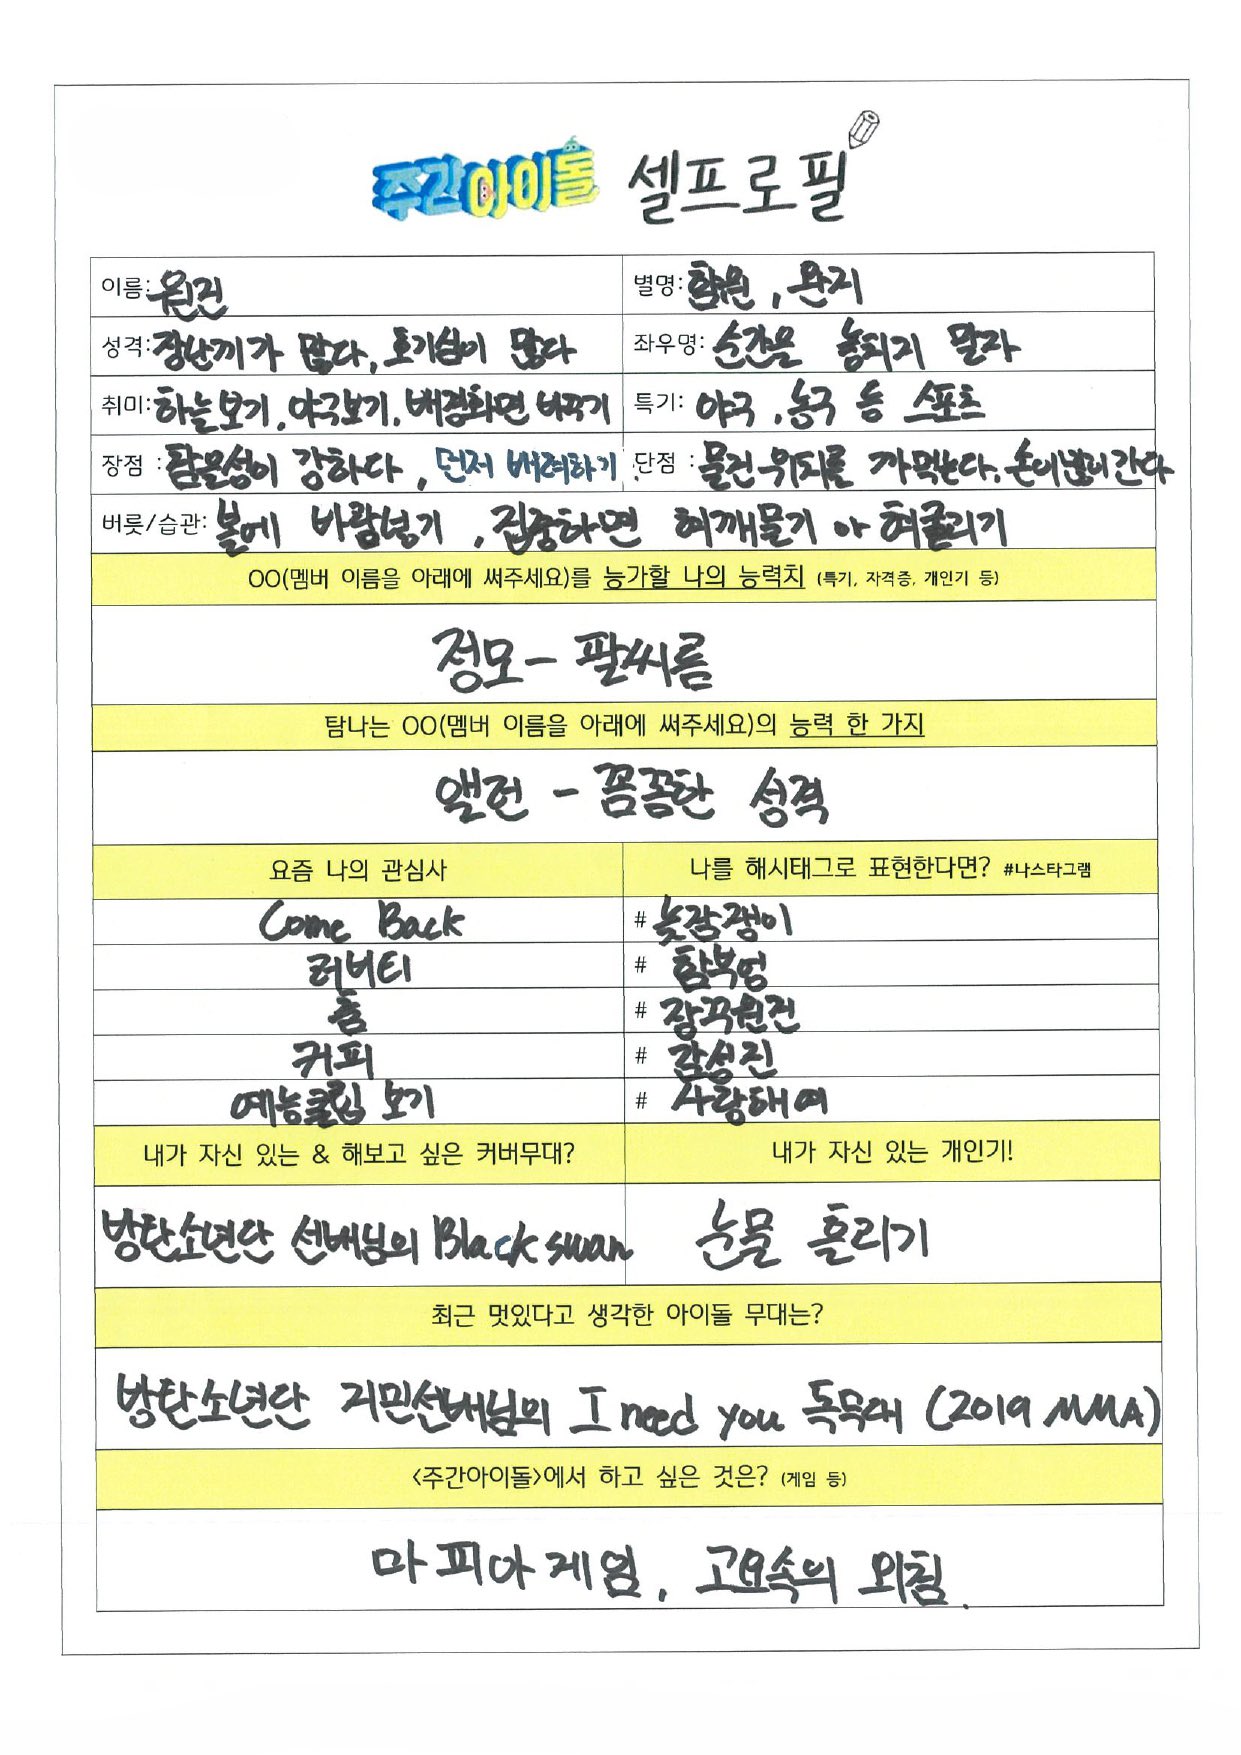 주간아이돌 셀프로필
이름: 원진
별명: 함원, 완지
성격: 장난끼가 많다, 호기심이 많다
좌우명: 순간을 놓치지 말자
취미: 하늘보기, 야구보기, 배경화면 바꾸기
특기: 야구, 농구 등 스포츠
장점 : 참을성이 강하다, 먼저 배려하기
단점 : 물건위치를 까먹는다. 손이 많이 간다
버릇/습관: 볼에 바람넣기, 집중하면 혀깨물기 아 혀굴리기
OO(멤버 이름을 아래에 써주세요)를 능가할 나의 능력치 (특기, 자격증, 개인기 등)
정모 - 팔씨름
탐나는 OO(멤버 이름을 아래에 써주세요)의 능력 한 가지
앨런 - 꼼꼼한 성격
요즘 나의 관심사
나를 해시태그로 표현한다면? #나스타그램
Come Back
# 늦잠쟁이
러비티
# 함부엉
춤
# 장꾸원진
커피
# 감성진
예능클립 보기
# 사랑해여
내가 자신 있는 & 해보고 싶은 커버무대?
내가 자신 있는 개인기!
방탄소년단 선배님의 Black swan
눈물 흘리기
최근 멋있다고 생각한 아이돌 무대는?
방탄소년단 지민선배님의 I need you 독무대 (2019 MMA)
<주간아이돌>에서 하고 싶은 것은? (게임 등)
마피아게임, 고요속의 외침.